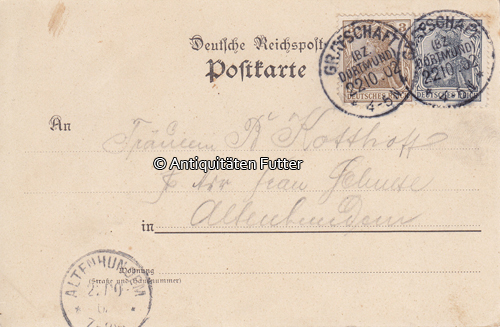 Deutsche Reichspost
Postkarte
GRAFSCHAFT
(BZ. DORTMUND)
22.10.02
* 4-5N *
GRAFSCHAFT
(BZ. DORTMUND)
22.10.02
* 4-5N *
3
DEUTSCHES REICH
An
Fräulein B. Kotthoff
© Antiquitäten Futter
Frau
in Altenhundem
Wohnung
(Straße und Hausnummer)
ALTENHUNDEM